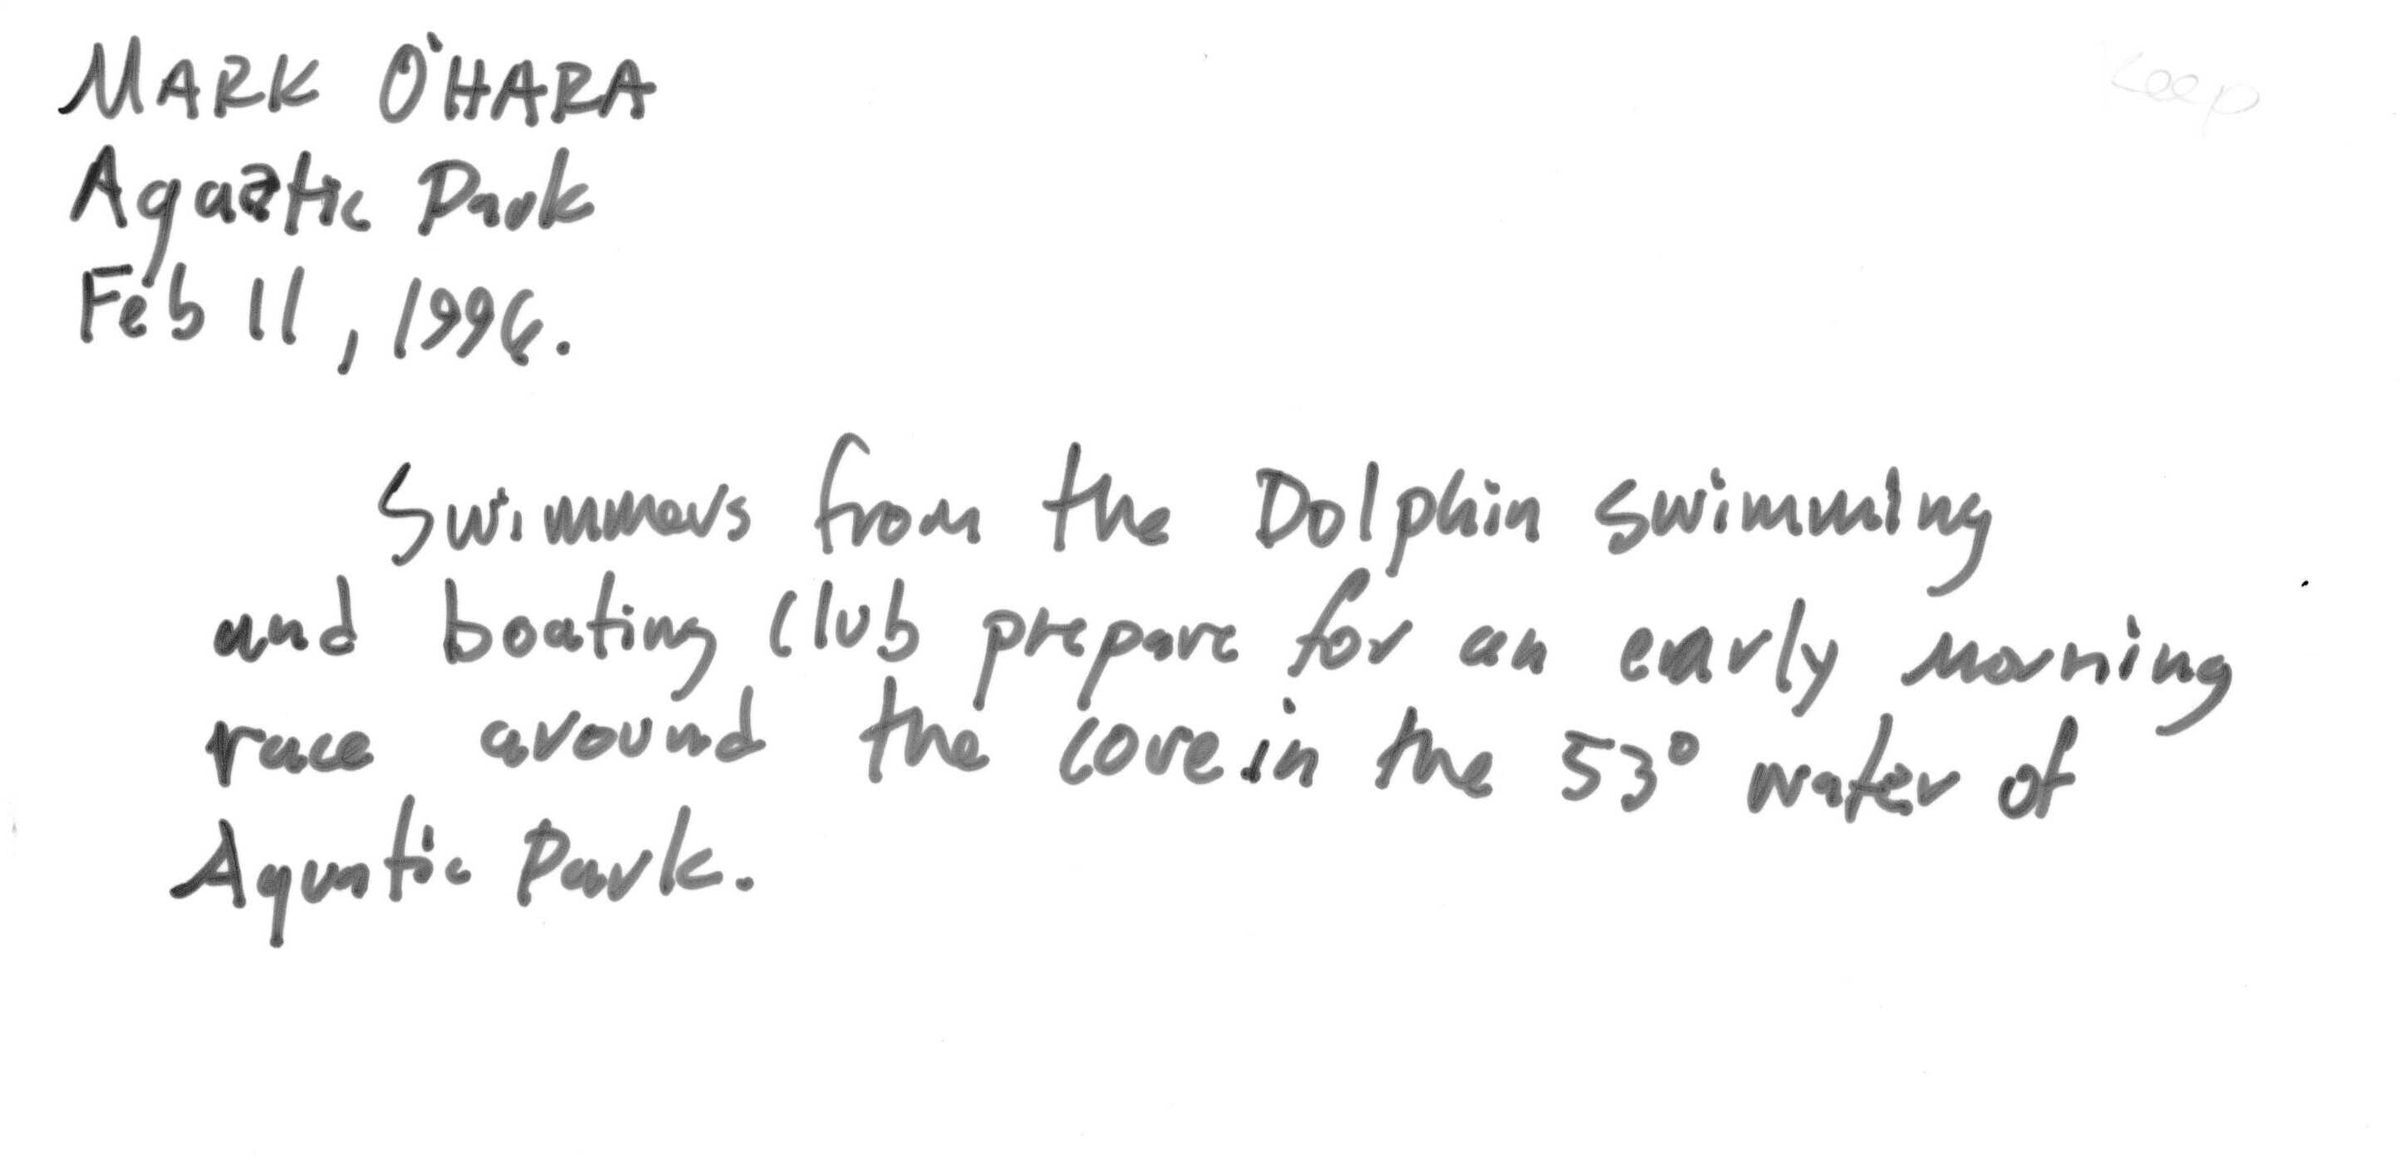 MARK O'HARA
keep
Aquatic Park
Feb 11, 1996.
Swimmers from the Dolphin swimming
and boating club prepare for an early morning
race around the cove in the 53° water of
Aquatic Park.